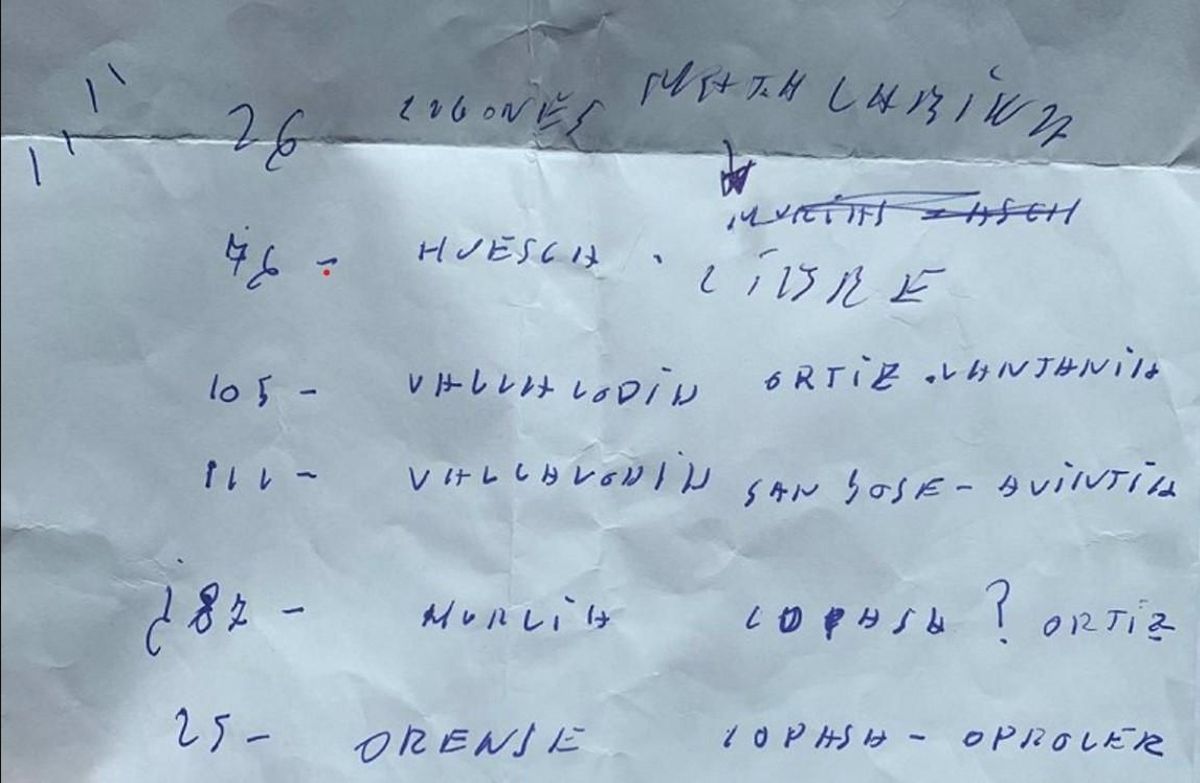 26 LUGONES MATA LABIKA
76 - HUESCA . LIBRE
105 - VALLALODID ORTIZ . CANTANIA
111 - VALLALODID SAN JOSE - AVINTIA
¿ 87 - MURCIA COPASA ? ORTIZ
25 - ORENSE COPASA - OPROLER